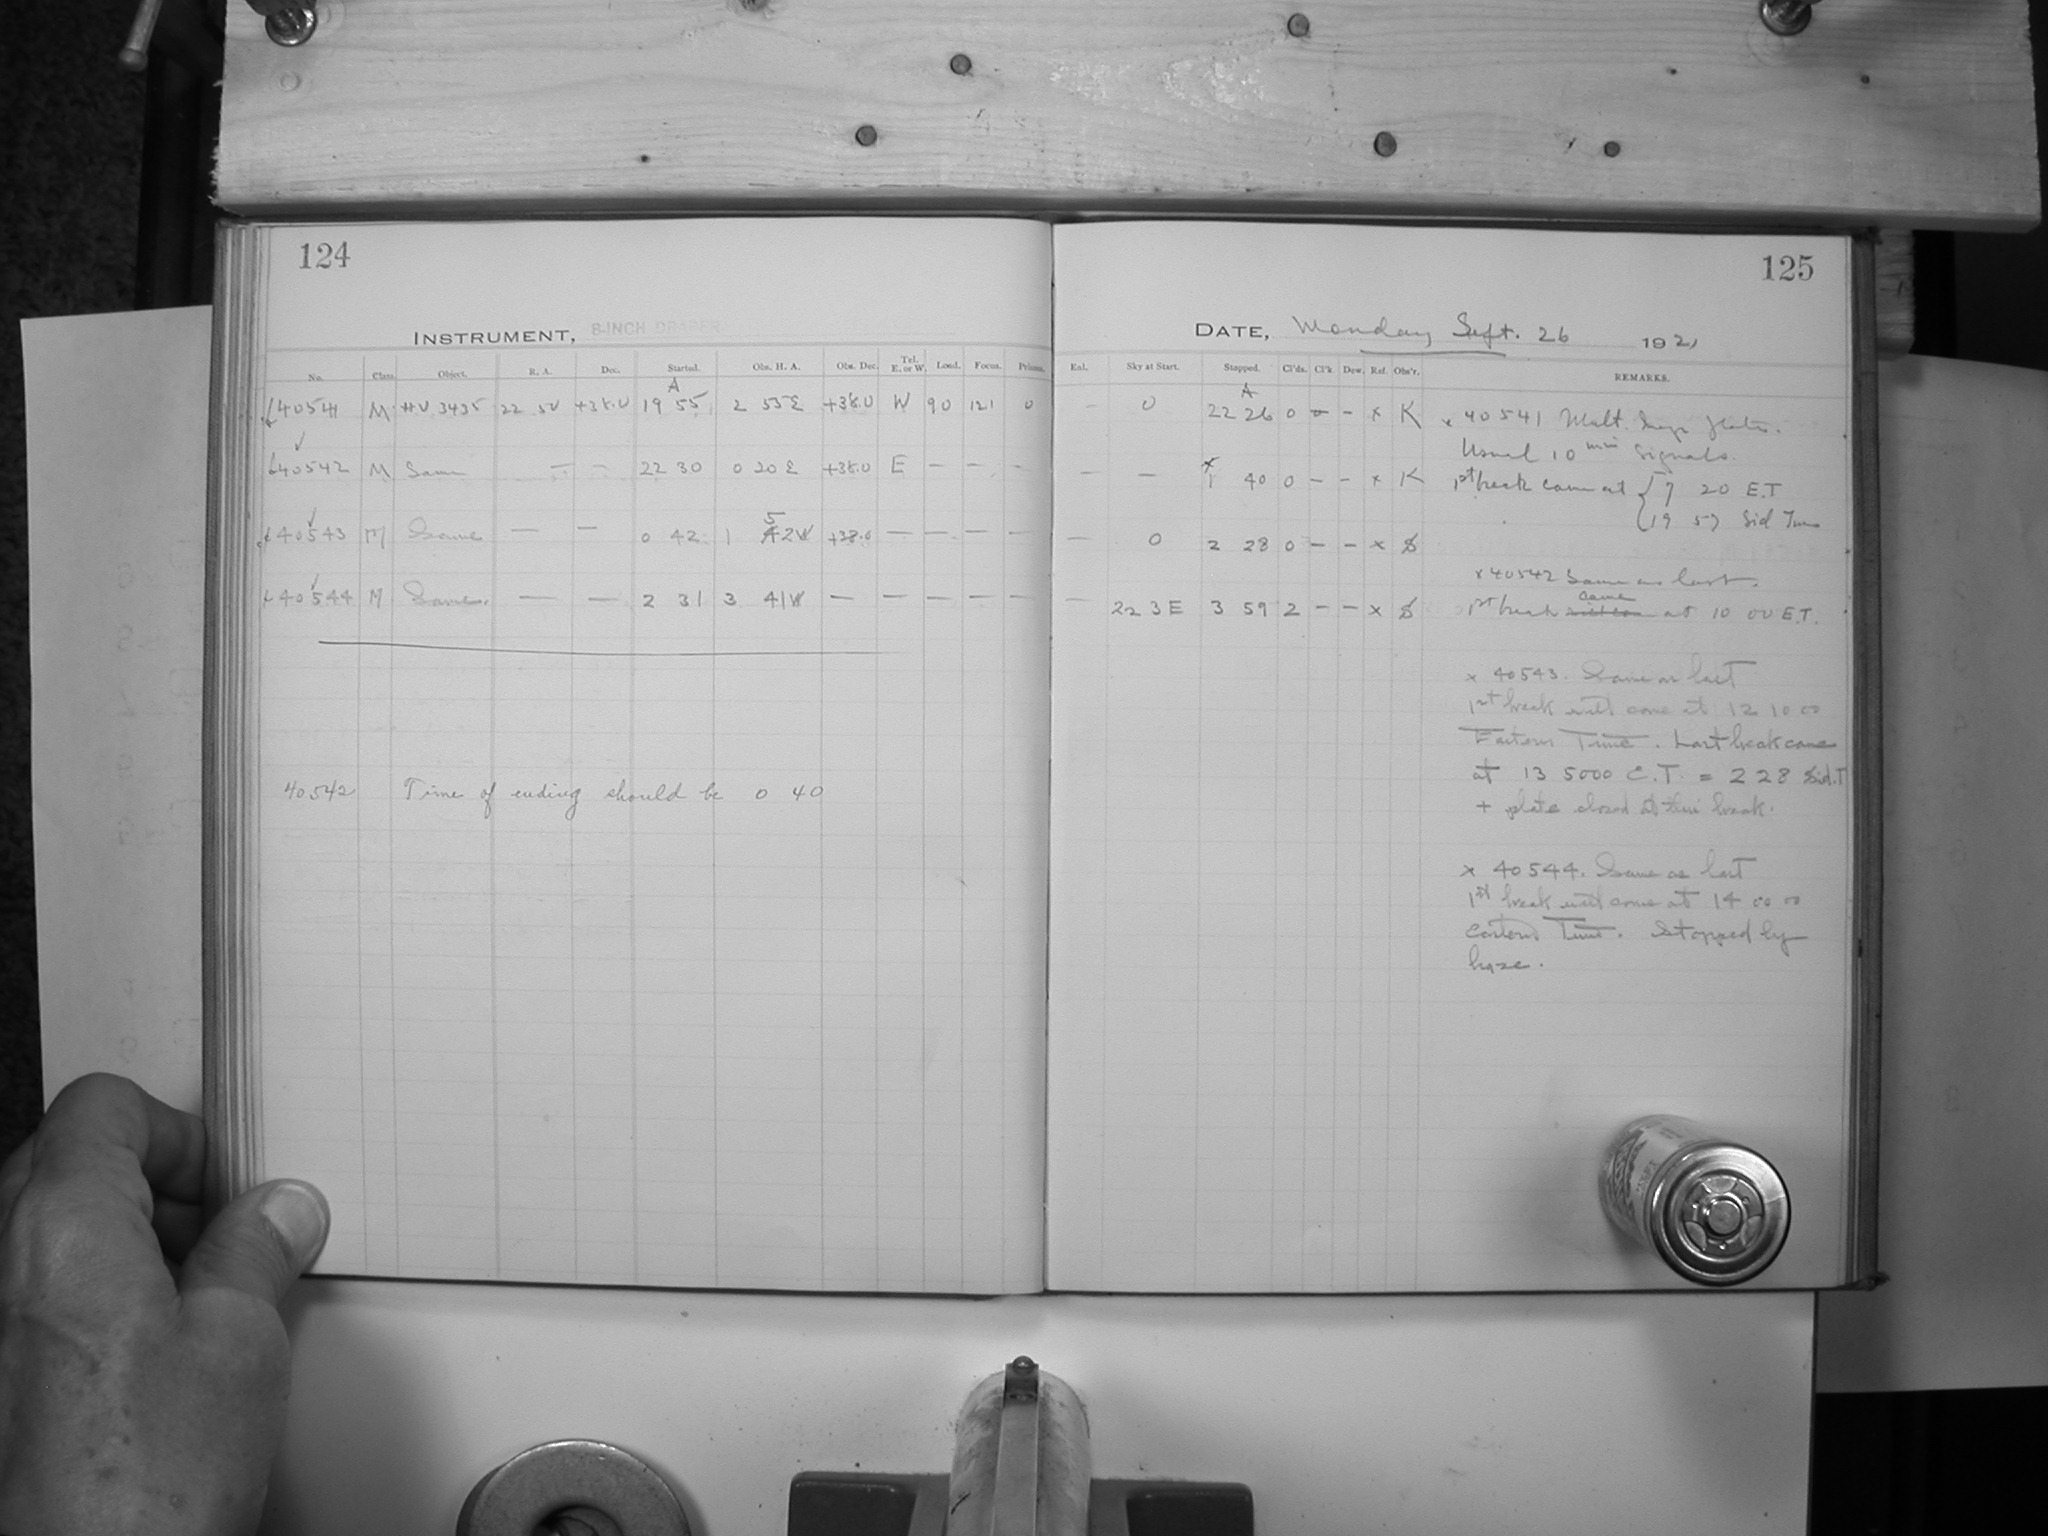 124
125
INSTRUMENT, 8-INCH DRAPER
DATE, Monday Sept. 26 1921
No. Class. Object. R. A. Dec. Started. Obs. H. A. Obs. Dec. Tel. E. or W. Load. Focus. Prisms.
Enl. Sky at Start. Stopped. Cl'ds. Cl'k Dew. Ref. Obs'r. REMARKS.
A
A
40541 M HV 3435 22 50 +38.0 19 55 2 55E +38.0 W 90 121 0
– 0 22 26 0 – – x K
x 40541 Mult. Plate.
Usual 10 min signals.
40542 M Same – – 22 30 0 20 E +38.0 E – – –
– – 1 40 0 – – x K
1st break came at { 7 20 E.T
{ 19 57 Sid Time
40543 M Same – – 0 42 1 52W +38.0 – – – –
– 0 2 28 0 – – x S
x 40542 Same as last.
40544 M Same. – – 2 31 3 41W – – – – –
– 22 3 E 3 59 2 – – x S
1st break came at 10 00 E.T.
x 40543. Same as last
1st break will come at 12 10 00
Eastern Time. Last break came
at 13 5000 E.T. = 2 28 Sid.T
+ plate closed at this break.
40542 Time of ending should be 0 40
x 40544. Same as last
1st break will come at 14 00 00
Eastern Time. Stopped by
haze.